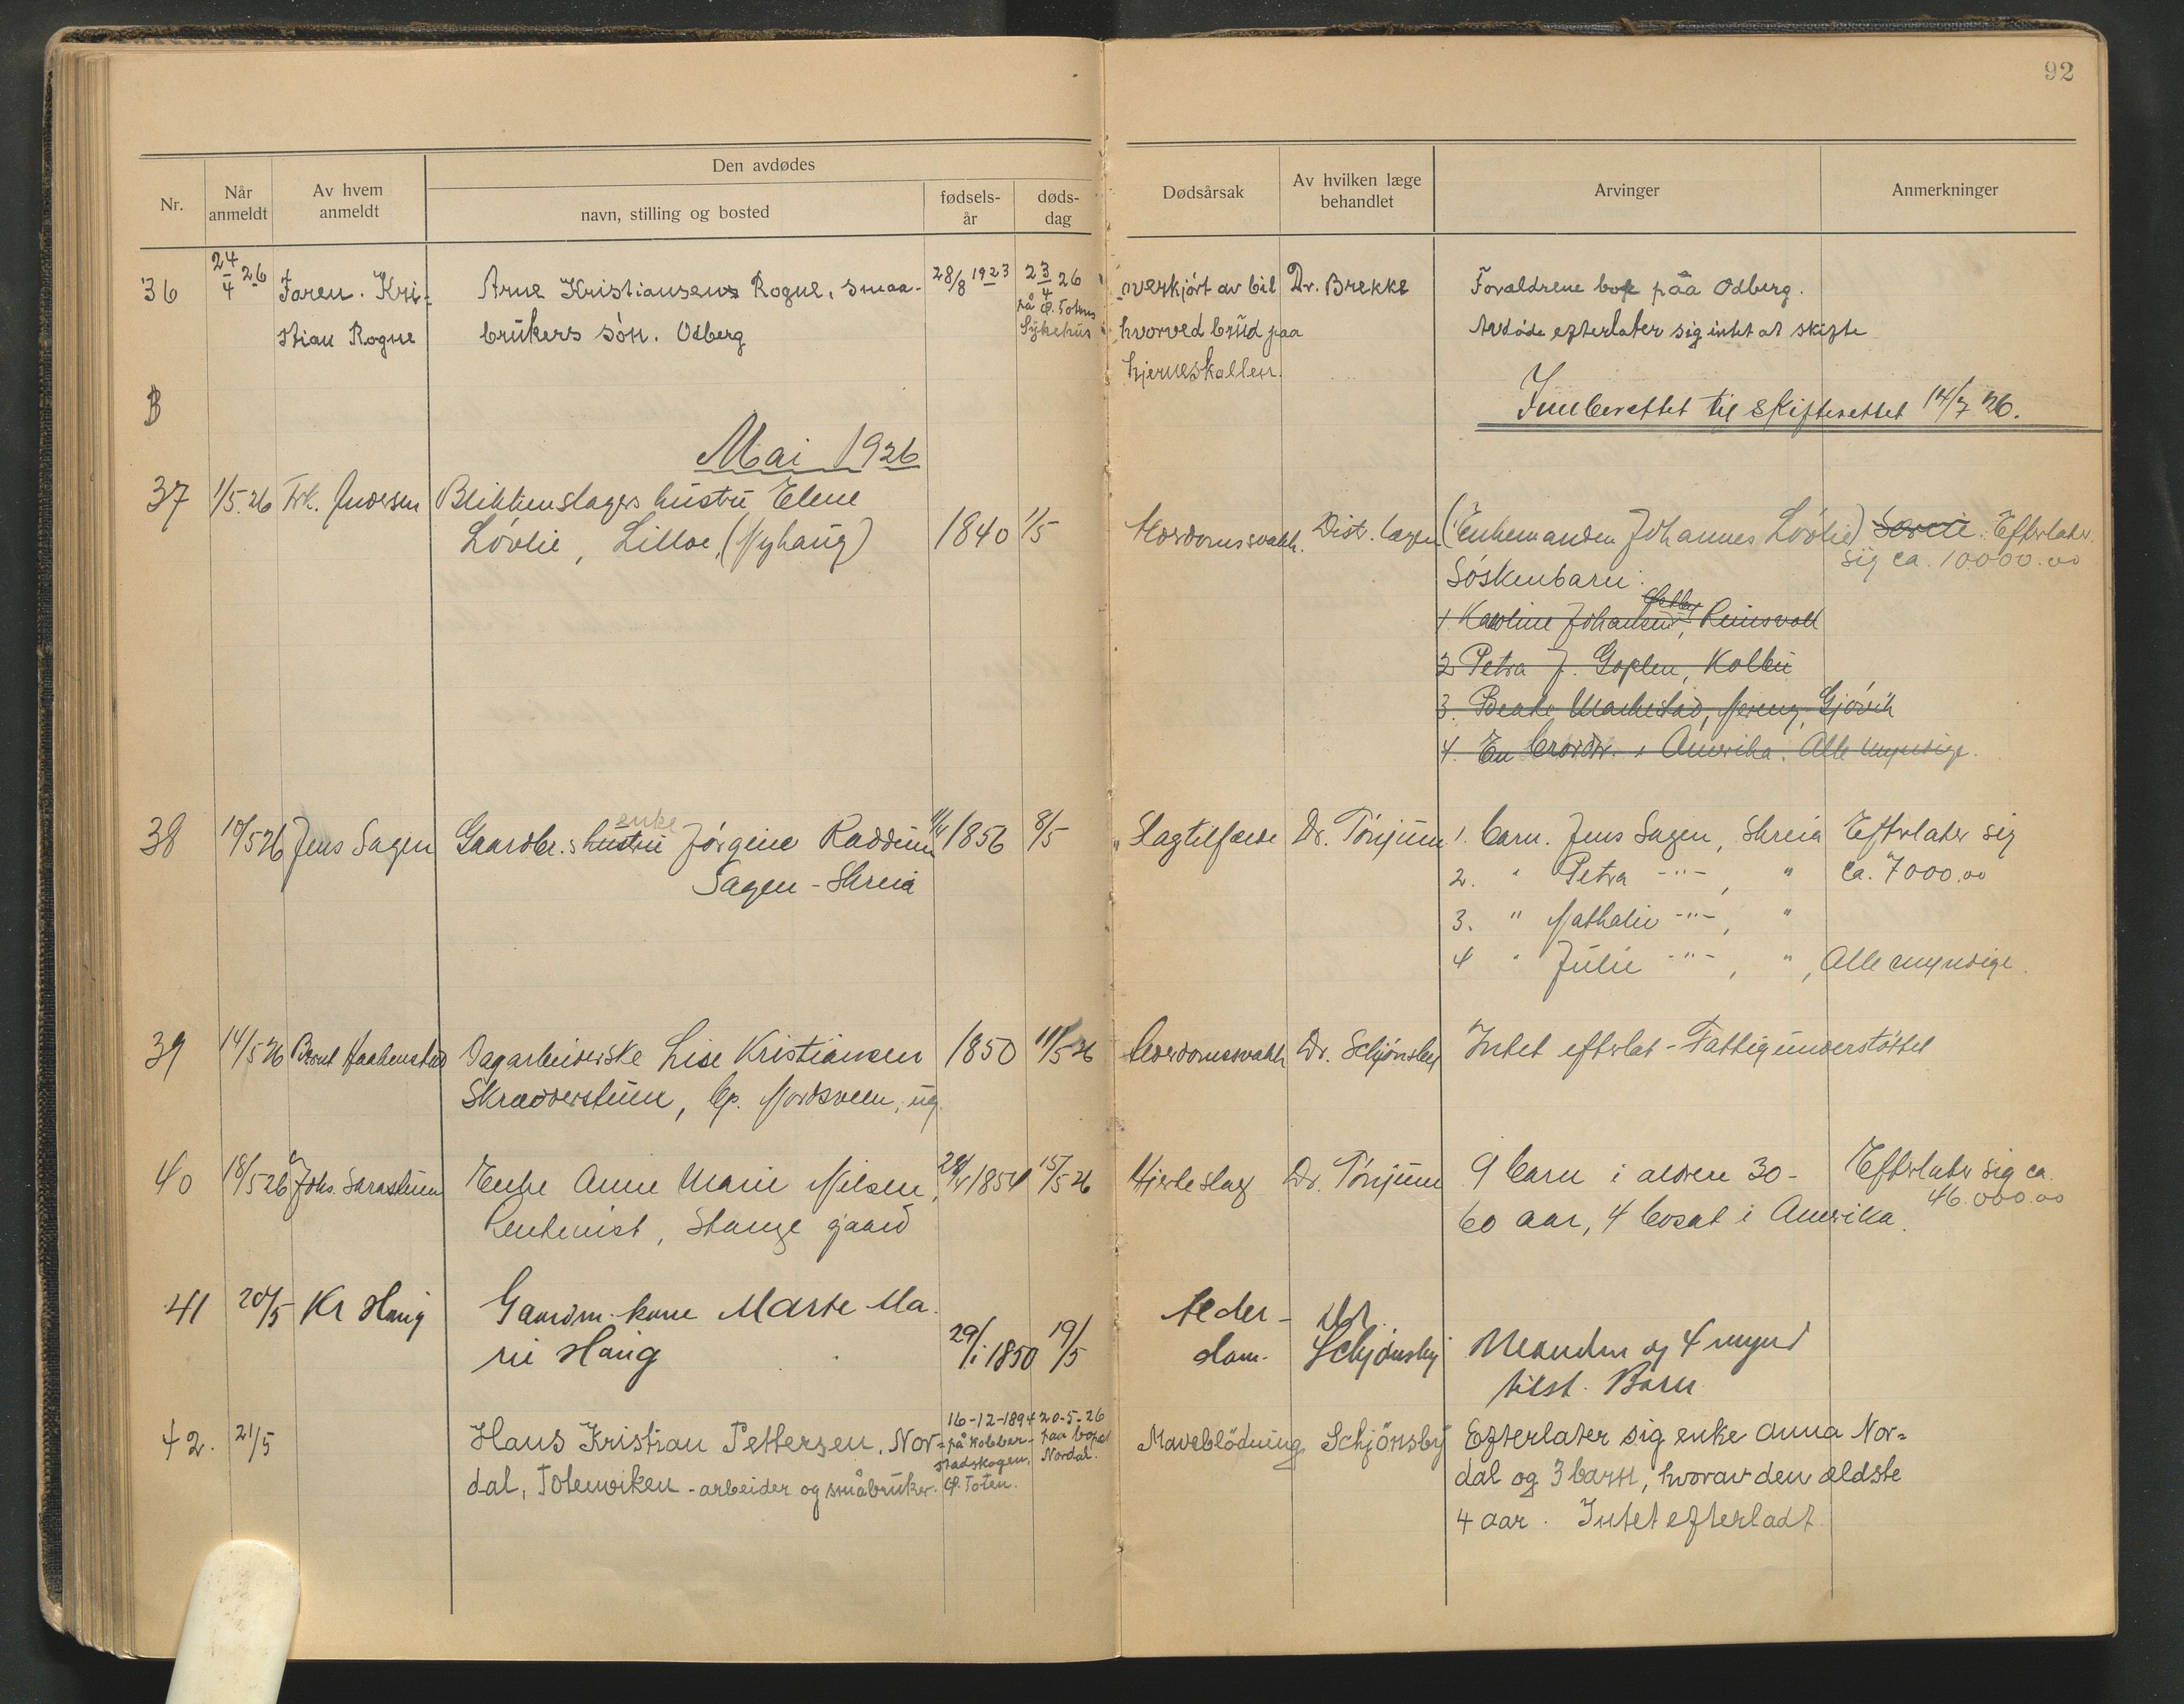 92
Den avdødes
Nr.
Når anmeldt
Av hvem anmeldt
navn, stilling og bosted
fødsels-år
døds-dag
Dødsårsak
Av hvilken læge behandlet
Arvinger
Anmerkninger
36 24/4 26 Faren. Kri- Arne Kristiansens Rogne, smaa- 28/8 1923 23/4 26 overkjørt av bil Dr. Brekke Forældrene bor paa Odberg.
stian Rogne brukers søn. Odberg på Ø. Totens Sykehus hvorved brud paa Avdøde efterlater sig intet at skifte
hjerneskallen.
Innberettet til skifteretten 14/7 26.
Mai 1926
37 1/5.26 Frk. Andersen Blikkenslagers hustru Elene
Løvlie, Lilloe, (Nyhaug) 1840 1/5 Alderdomssvakh. Distr. lægen (Enkemanden Johannes Løvlie) Efterlater
sig ca. 10000.00
Søskenbarn:
1 Karoline Johansen, Reinsvoll
2 Petra J. Goplen, Kolbu
3. Beate Markestad, Nereng, Gjøvik
4. En brordr. i Amerika. Alle myndige.
38 10/5 26 Jens Sagen Gaardbr.s hustru enke Jørgine Raddum 1856 8/5 Slagtilfælde Dr. Tønjum 1. barn. Jens Sagen, Skreia Efterlater sig
Sagen - Skreia 2. " Petra -"-, " ca. 7000.00
3. " Nathalie -"-, "
4 " Julie -"-, ", Alle myndige.
39 14/5 26 Bernt Haakenstad Dagarbeiderske Lise Kristiansen 1850 11/5 26 Alderdomssvakh Dr. Schjønsby Intet efterlat - Fattigunderstøttet
Skrædderstuen, Nordsveen, ug.
40 18/5 26 Johs. Enke Anne Marie Nilsen, 1854 15/5 26 Hjerteslag Dr. Tønjum 9 barn i alderen 30- Efterlater sig ca.
Rentenist, Stange gaard 60 aar, 4 bosat i Amerika. 46.000.00
41 20/5 Kr Haug Gaardm. kone Marte Ma- Alder- Dr.
rie Haug 29/1 1850 19/5 dom. Schjønsby Manden og 4 mynd
tilst. Barn
42. 21/5 Hans Kristian Pettersen, Nor- 16-12-1894 20-5-26 Maveblödning Schjönsby Efterlater sig enke Anna Nor-
på Kolbberstadskogen, Ø. Toten. paa bopæl Nordal.
dal, Totenviken - arbeider og småbruker. dal og 3 barn, hvorav den ældste
4 aar. Intet efterladt.